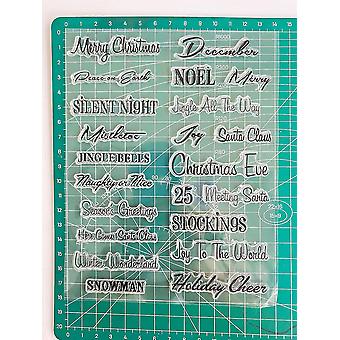 Merry Christmas
Peace on Earth
SILENT NIGHT
Mistletoe
JINGLE BELLS
Naughty or Nice
Season's Greetings
Here Comes Santa Claus
Winter Wonderland
SNOWMAN
December
NOËL Merry
Jingle All The Way
Joy Santa Claus
Christmas Eve
25 Meeting Santa
STOCKINGS
Joy To The World
Holiday Cheer